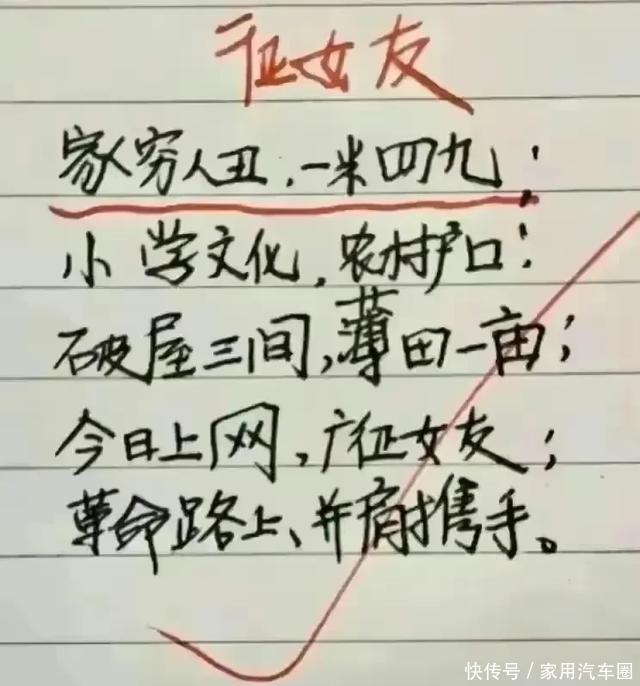 征女友
家穷人丑，一米四九；
小学文化，农村护口；
破屋三间，薄田一亩；
今日上网，广征女友；
革命路上、并肩携手。
快传号/家用汽车圈